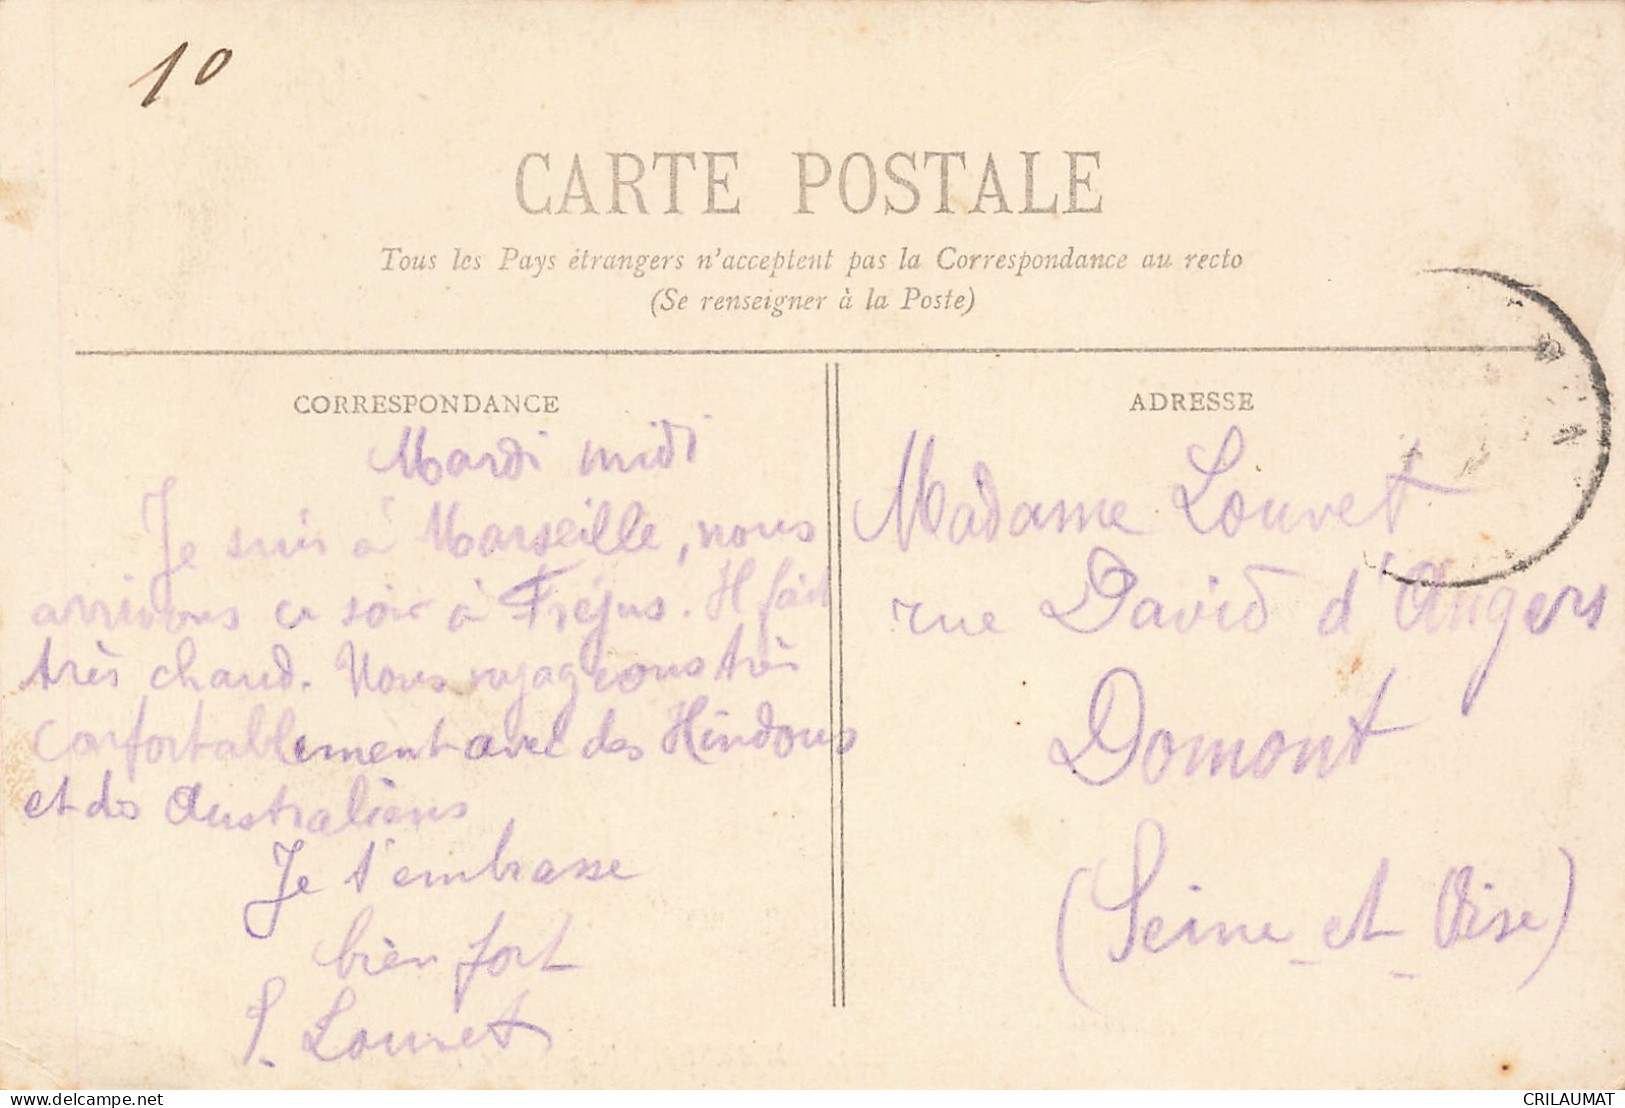 10
CARTE POSTALE
Tous les Pays étrangers n'acceptent pas la Correspondance au recto
(Se renseigner à la Poste)
CORRESPONDANCE
Mardi midi
Je suis à Marseille, nous
arrivons ce soir à Fréjus. Il fait
très chaud. Nous voyageons très
confortablement avec des Hindous
et des Australiens
Je t'embrasse
bien fort
Louvet
ADRESSE
Madame Louvet
rue David d'Angers
Domont
(Seine-et-Oise)
delcampe.net
CRILAUMAT